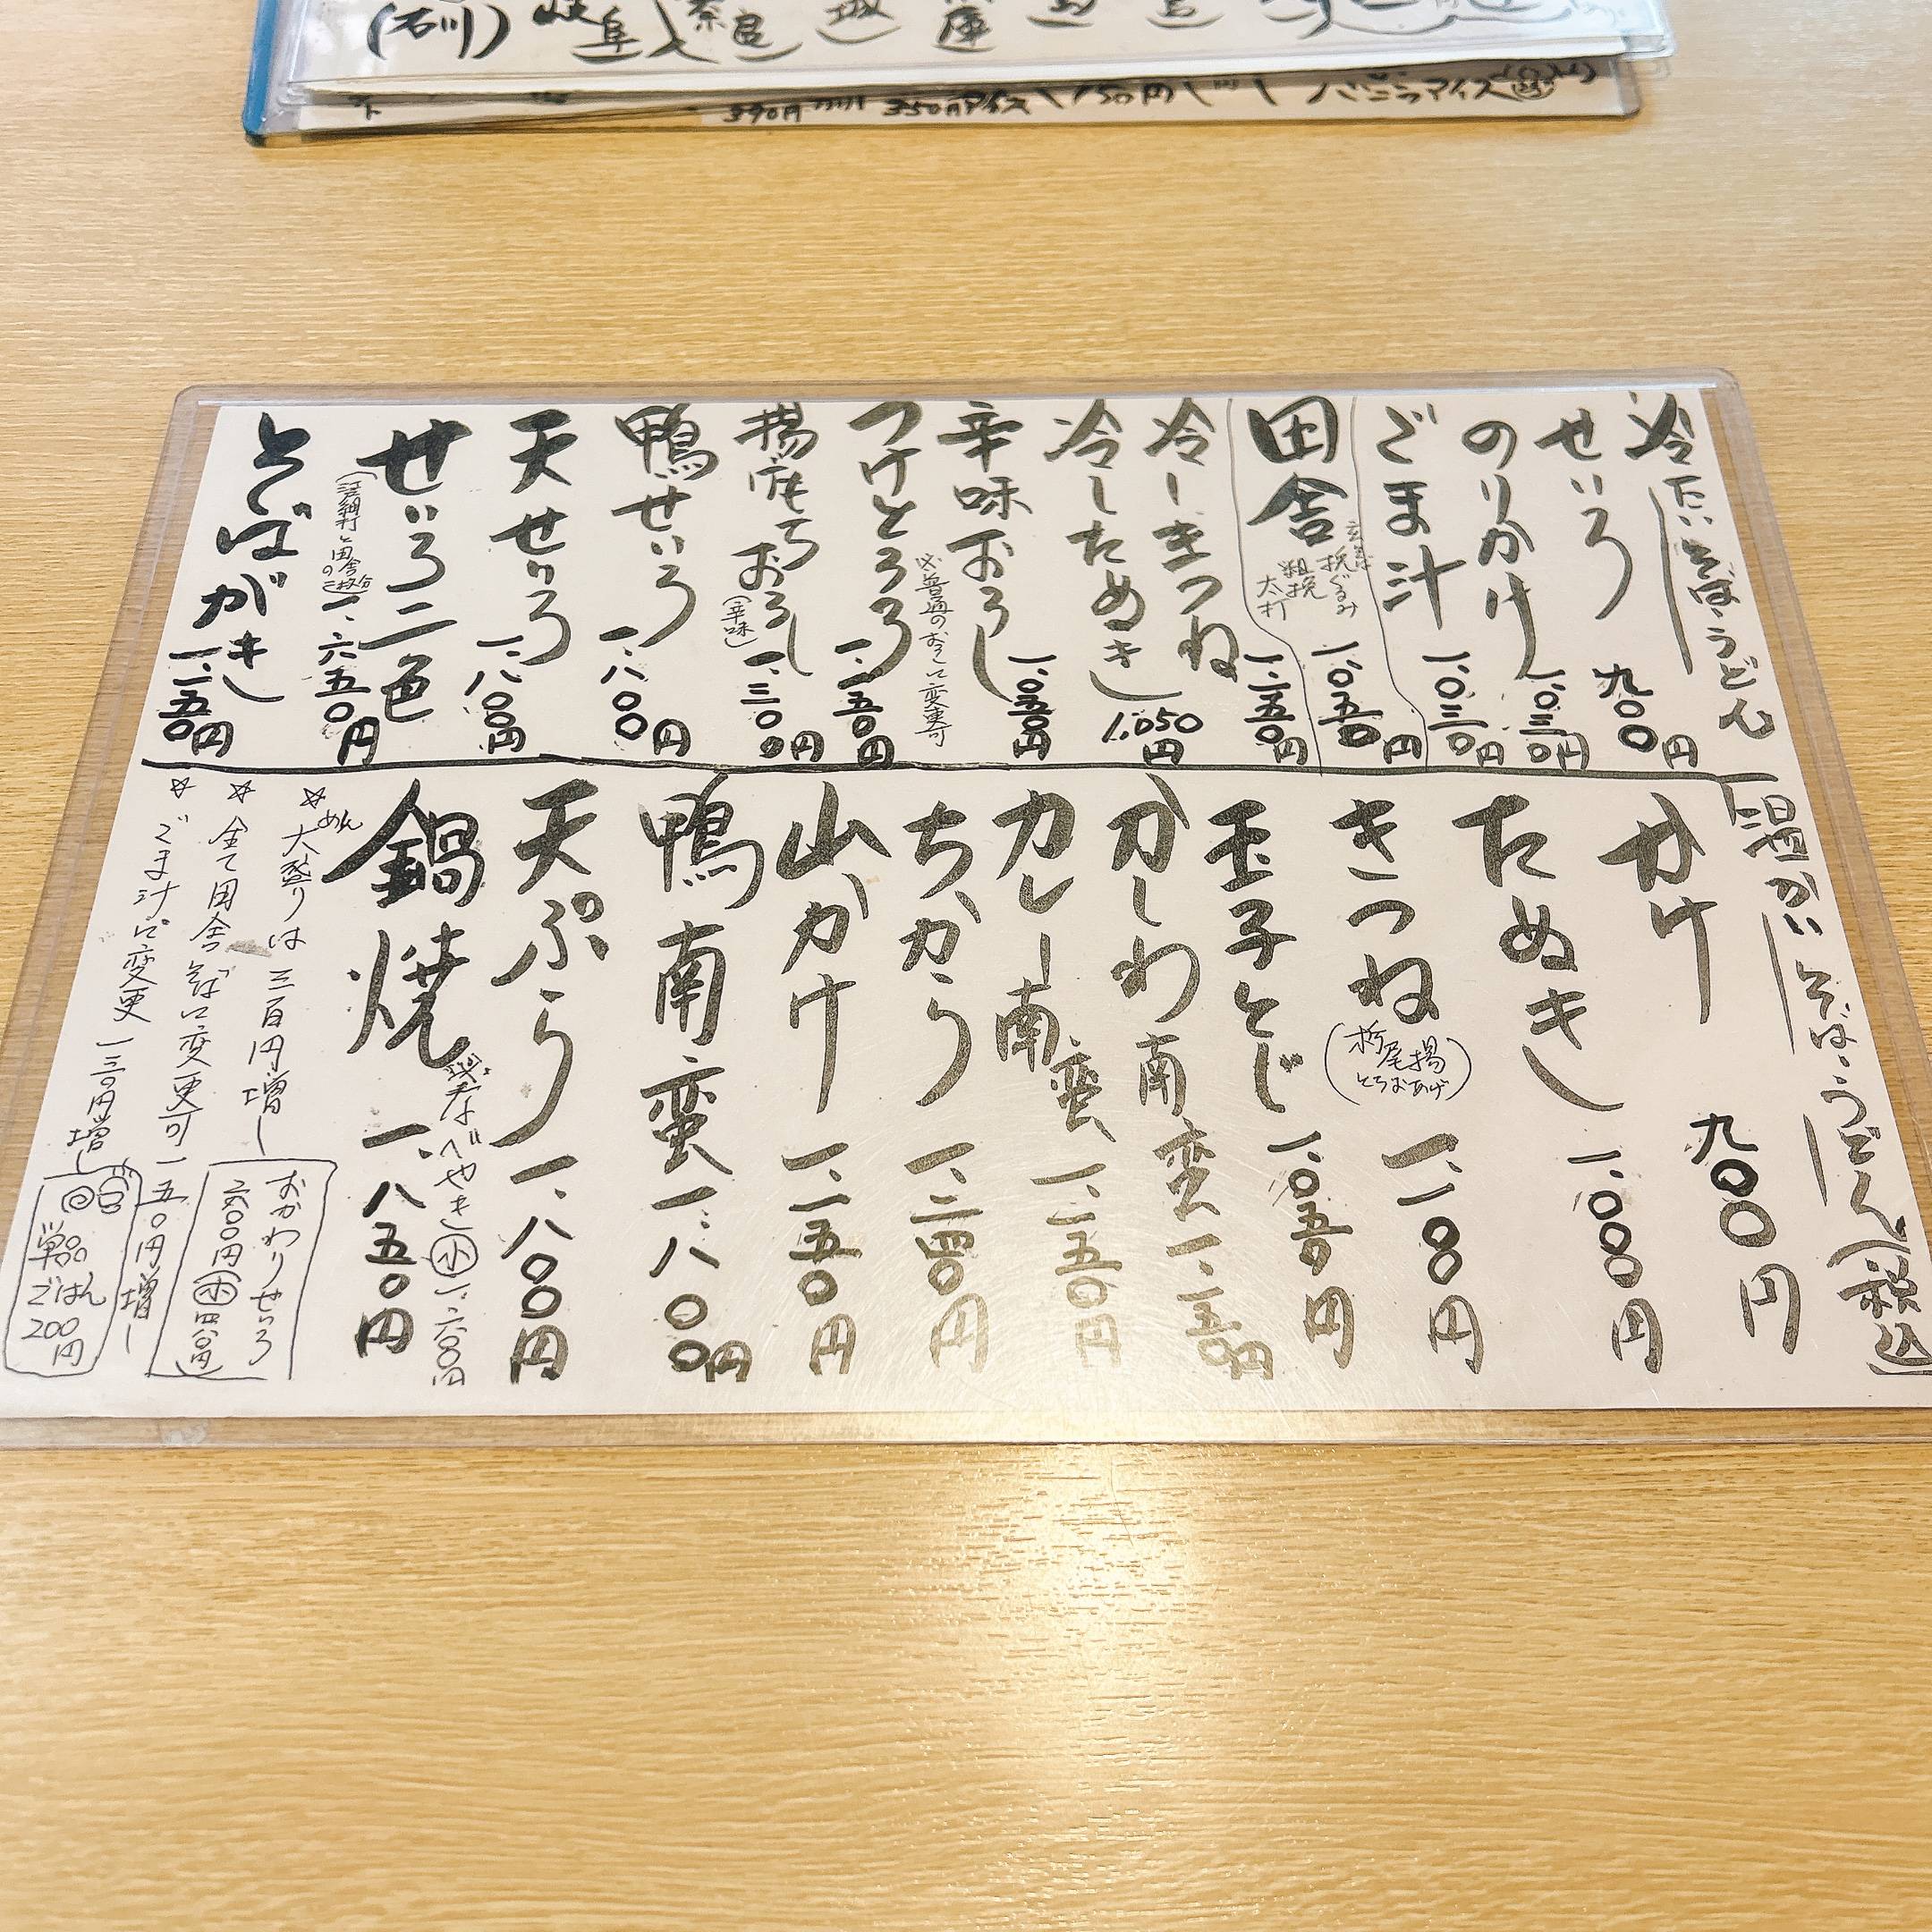 (石川)
岐阜
奈良
390円
350円アイス
150円
バニラアイス
冷たいそば・うどん
せいろ 九〇〇円
のりかけ 一、〇三〇円
ごま汁 一、〇三〇円
田舎 一、〇五〇円
挽ぐるみ
粗挽
太打
冷しきつね 一、一五〇円
冷したぬき 1,050円
辛味おろし 一、〇五〇円
※普通のおろしに変更可
つけとろろ 一、一五〇円
揚もちおろし (辛味) 一、三〇〇円
鴨せいろ 一、八〇〇円
天せいろ 一、八〇〇円
せいろ二色 一、六五〇円
そばがき 一、一五〇円
温かいそば・うどん(税込)
かけ 九〇〇円
たぬき 一、〇〇〇円
きつね (栃尾揚 とちおあげ) 一、一〇〇円
玉子とじ 一、〇五〇円
かしわ南蛮 一、一五〇円
カレー南蛮 一、一五〇円
ちから 一、二四〇円
山かけ 一、一五〇円
鴨南蛮 一、八〇〇円
天ぷら 一、八〇〇円
鍋焼 一、八五〇円
なべやき小 一、六〇〇円
☆めん大盛りは 三百円増し
☆全て田舎そばに変更可 一五〇円増し
☆ごま汁に変更 一三〇円増し
おかわりせいろ
六〇〇円
単品
ごはん
200円